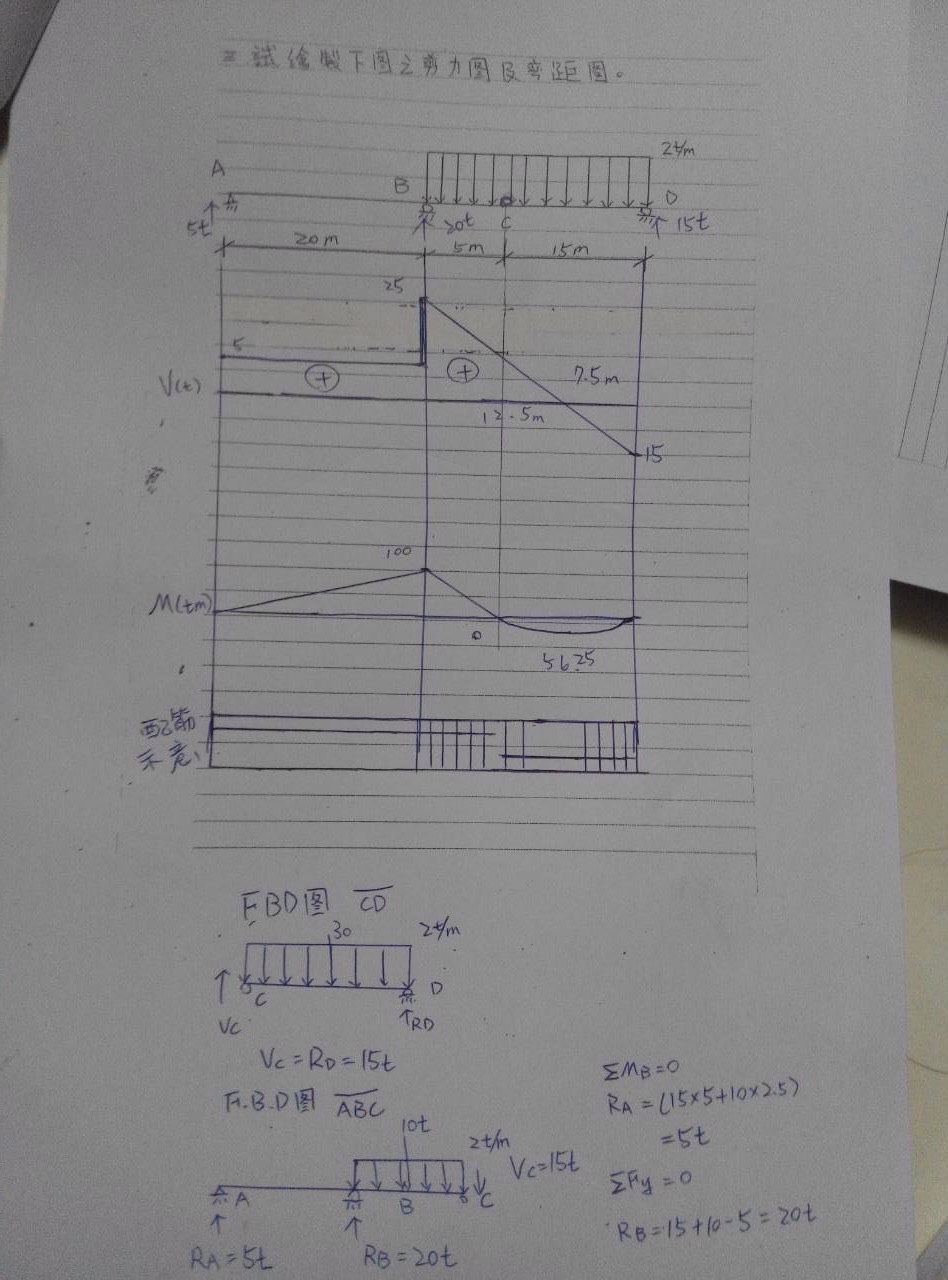 三 試繪製下图之剪力图及弯距图。
2t/m
A
B
D
5t
20t
C
15t
20m
5m
15m
25
5
+
+
7.5m
V(t)
12.5m
15
100
M(tm)
0
56.25
配筋
示意
F.BD图 CD
30
2t/m
C
D
VC
RD
VC=RD=15t
F.B.D图 ABC
10t
2t/m
VC=15t
A
B
C
RA=5t
RB=20t
ΣMB=0
RA=(15×5+10×2.5)
=5t
ΣFy=0
RB=15+10-5=20t